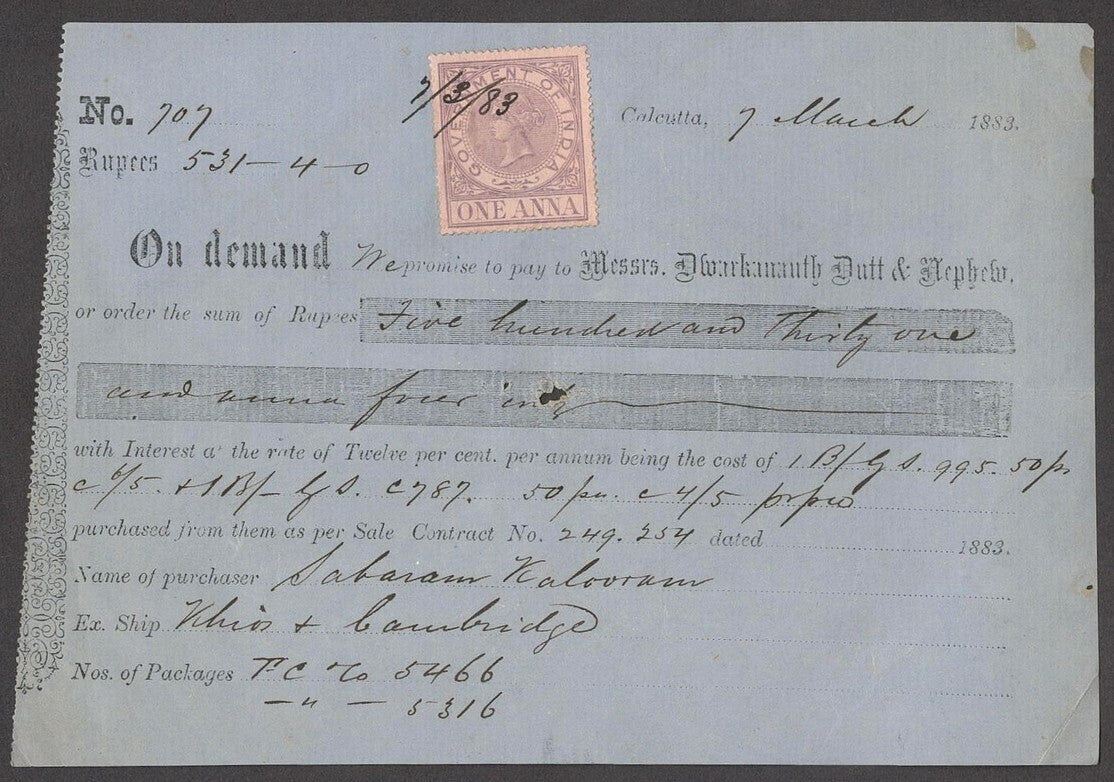 No. 707
7/3/83
GOVERNMENT OF INDIA
ONE ANNA
Calcutta, 7 March 1883.
Rupees 531-4-0
On demand We promise to pay to Messrs. Dwarkanauth Dutt & Nephew.
or order the sum of Rupees Five hundred and Thirty one
and anna four only
with Interest at the rate of Twelve per cent. per annum being the cost of 1 B/ G S. 995. 50 ps
+ 1 B/- G S. C787. 50 ps. c 4/5
purchased from them as per Sale Contract No. 249. 254 dated 1883.
Name of purchaser Sabaram Kalooram
Ex. Ship Khios + Cambridge
Nos. of Packages 5466
- " - 5316